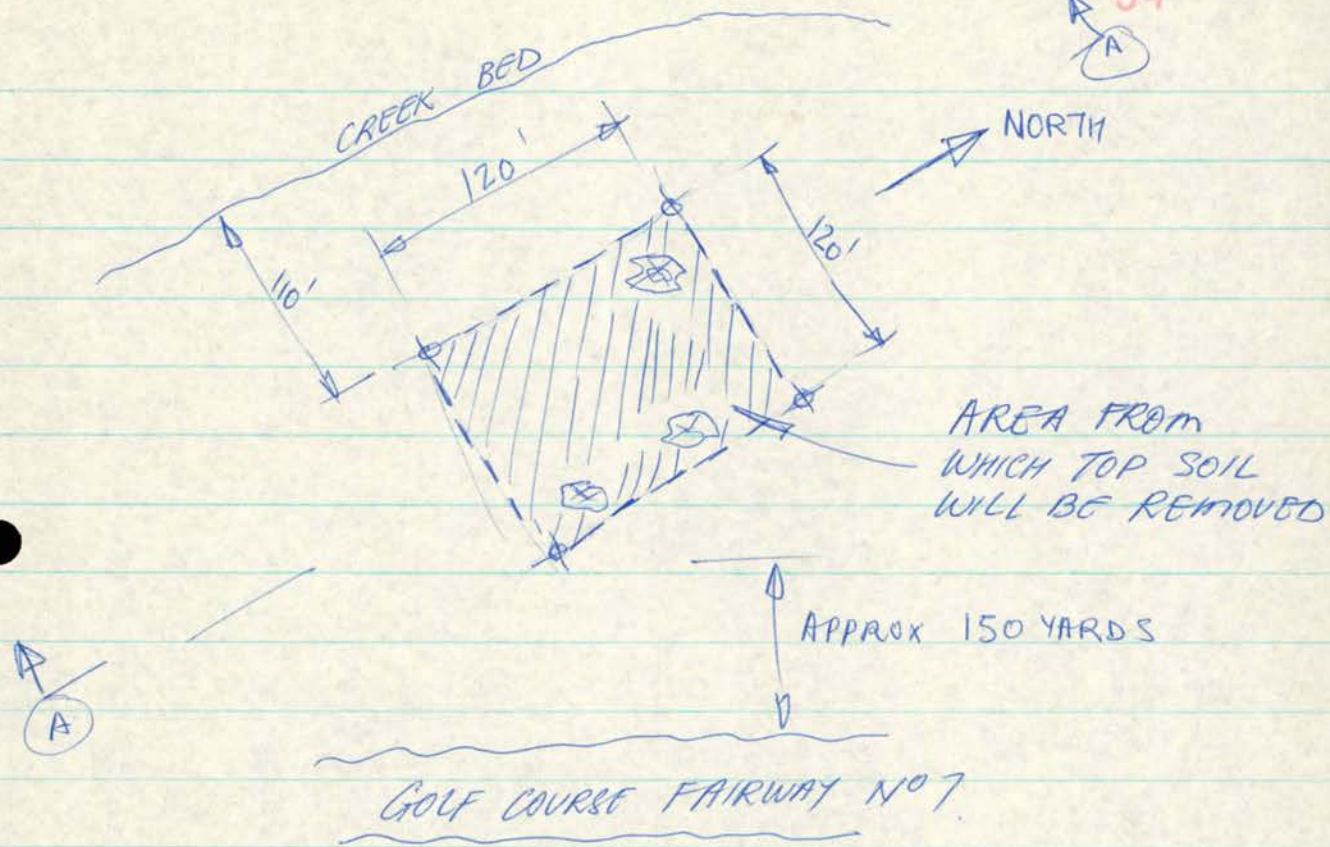 A
NORTH
CREEK BED
120'
120'
110'
AREA FROM
WHICH TOP SOIL
WILL BE REMOVED
APPROX 150 YARDS
A
GOLF COURSE FAIRWAY Nº 7.